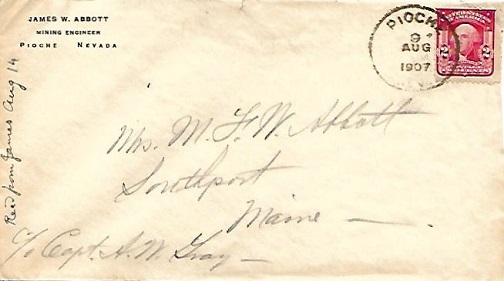 JAMES W. ABBOTT
MINING ENGINEER
PIOCHE NEVADA
PIOCHE
9
AUG
1907
NEV.
2 2
Mrs. M. F. W. Abbott
Southport
Maine
c/o Capt. A. W. Gray
Rec'd from James Aug 14